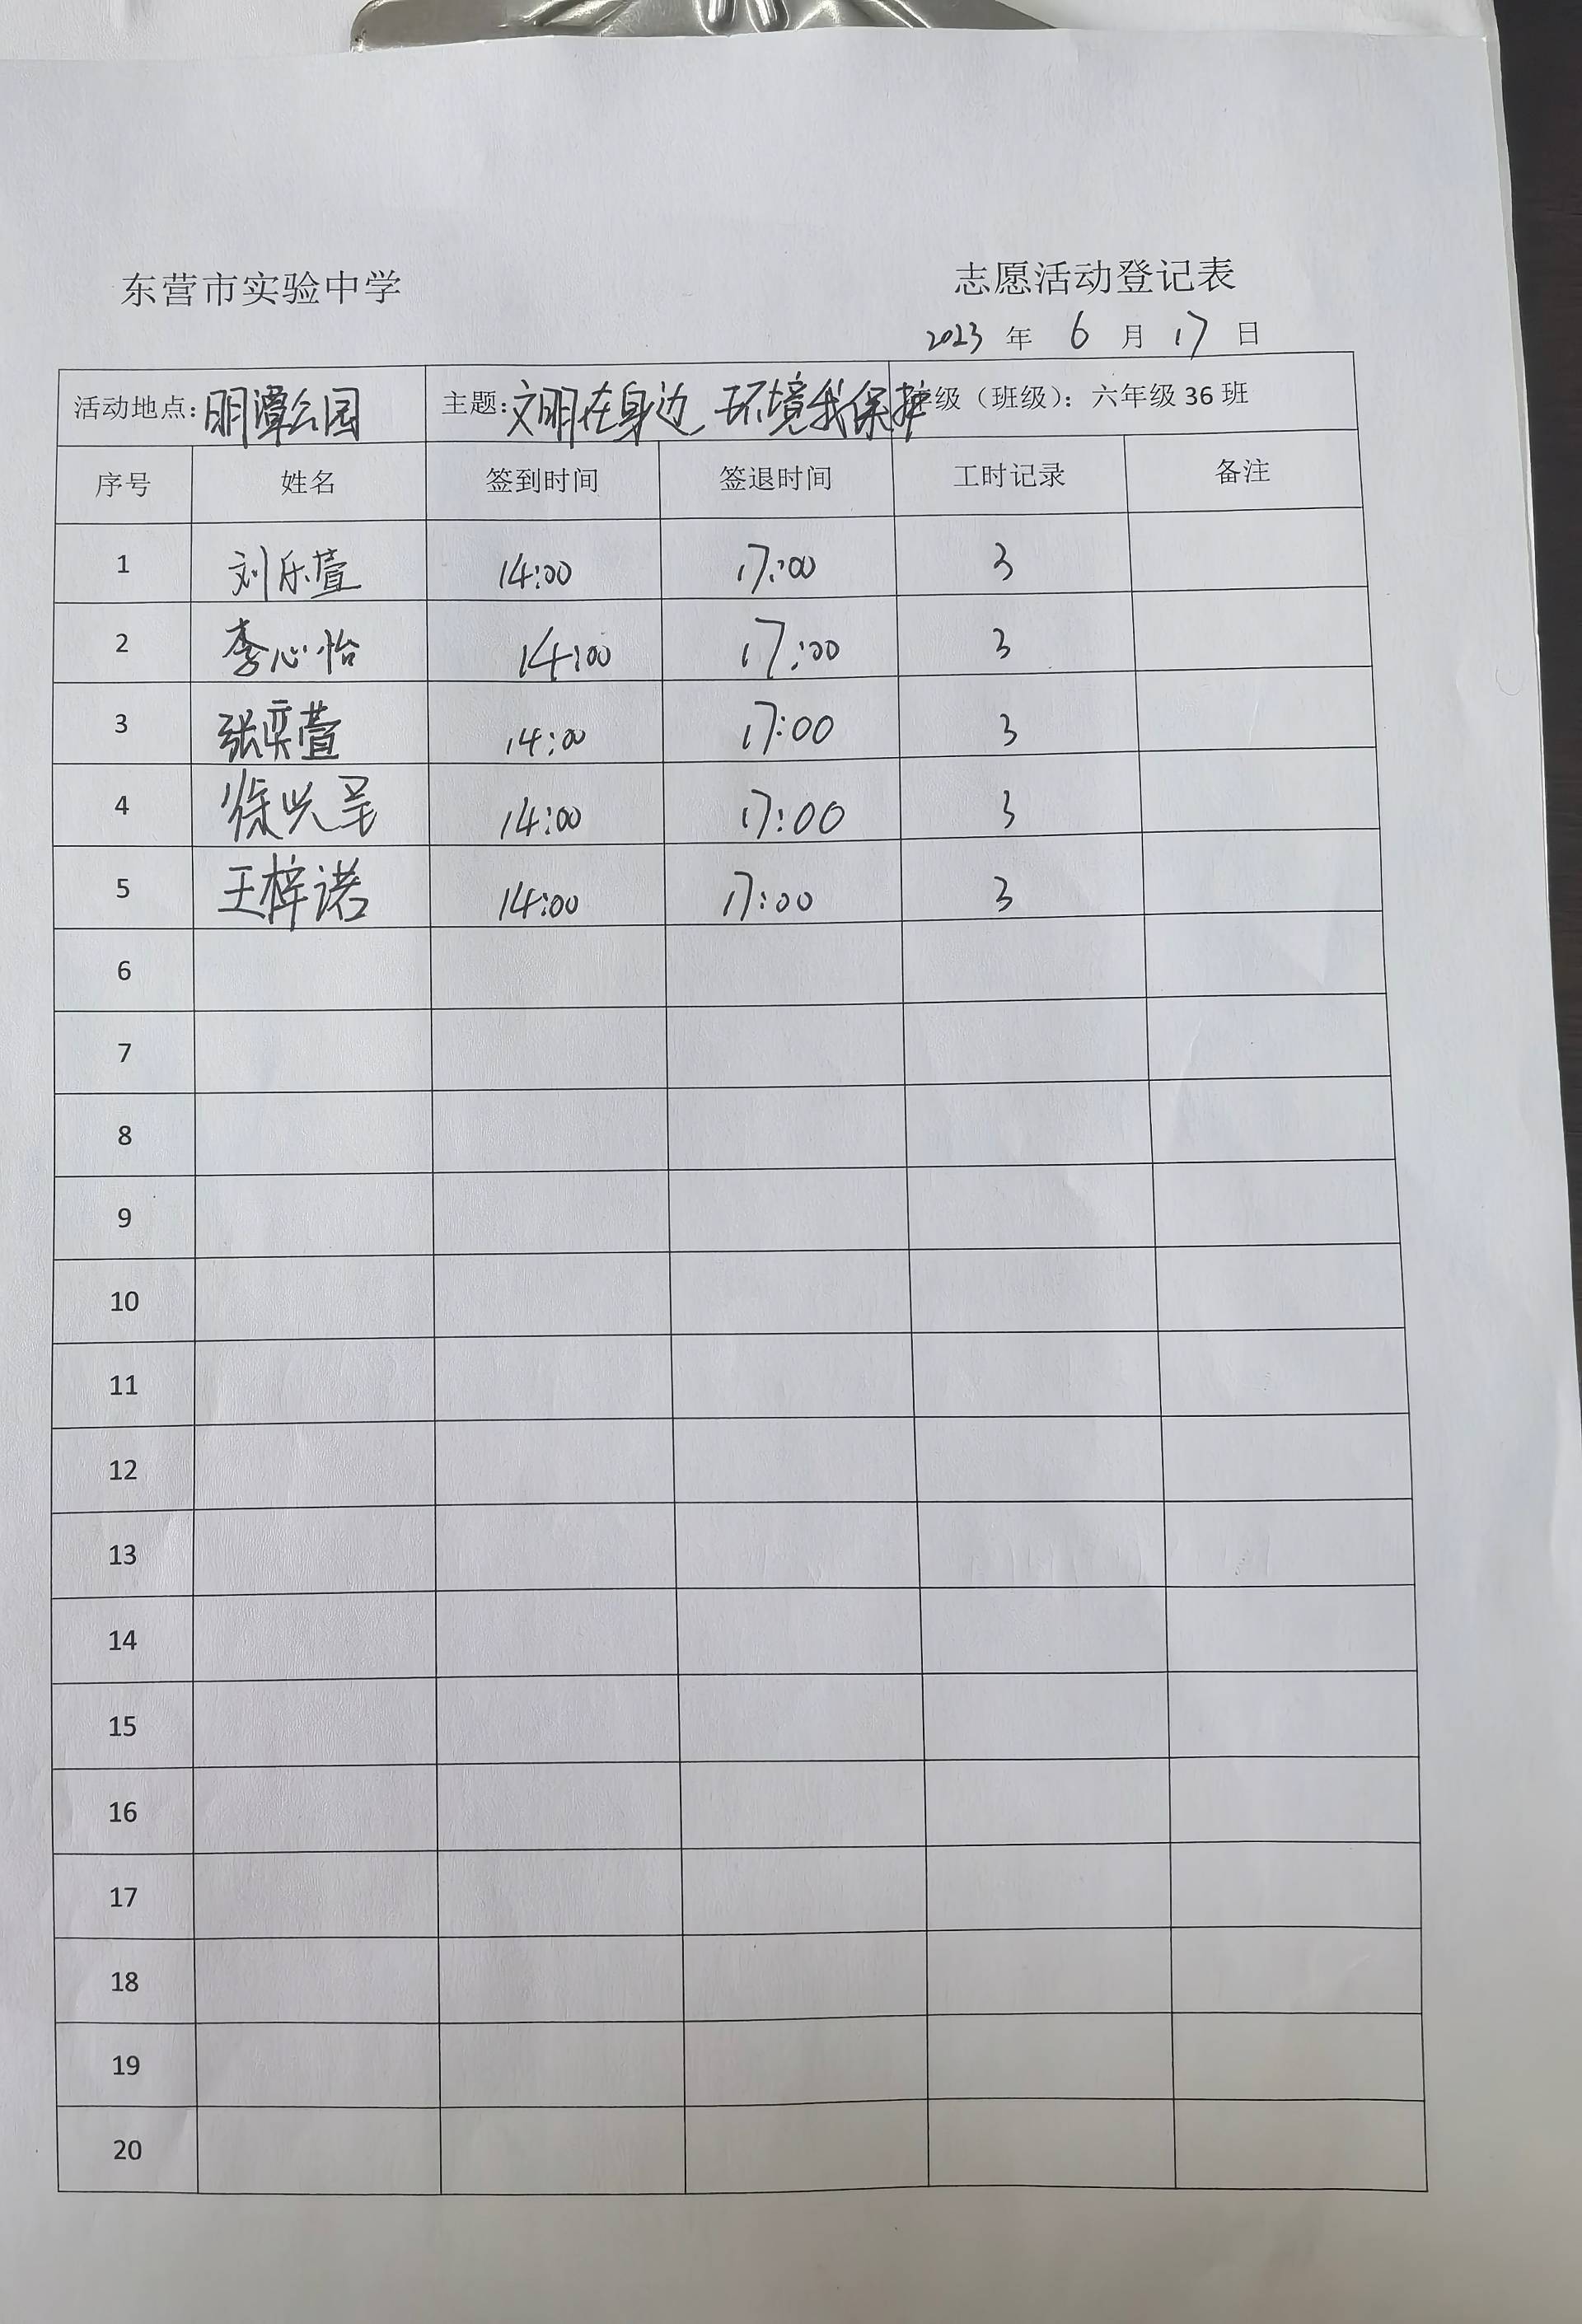 东营市实验中学 志愿活动登记表
2023 年 6 月 17 日
活动地点：明潭公园 主题：文明在身边 环境我保护 年级（班级）：六年级 36 班
序号 姓名 签到时间 签退时间 工时记录 备注
1 刘乐萱 14:00 17:00 3
2 李心怡 14:00 17:00 3
3 张奕萱 14:00 17:00 3
4 徐兴呈 14:00 17:00 3
5 王梓诺 14:00 17:00 3
6
7
8
9
10
11
12
13
14
15
16
17
18
19
20